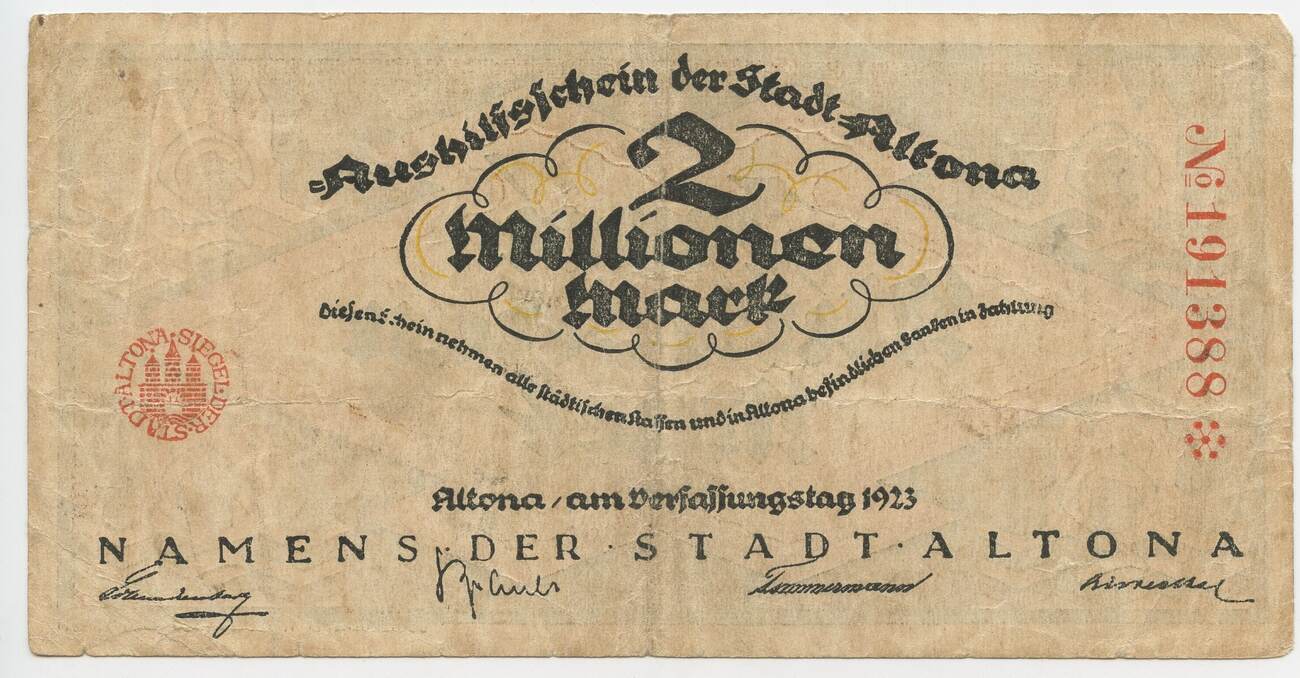 Aushilfsschein der Stadt Altona
2
Millionen
Mark
Diesen Schein nehmen alle städtischen Kassen und in Altona befindlichen Banken in Zahlung
№ 191388
SIEGEL·DER·STADT·ALTONA·
Altona / am Verfassungstag 1923
NAMENS·DER·STADT·ALTONA